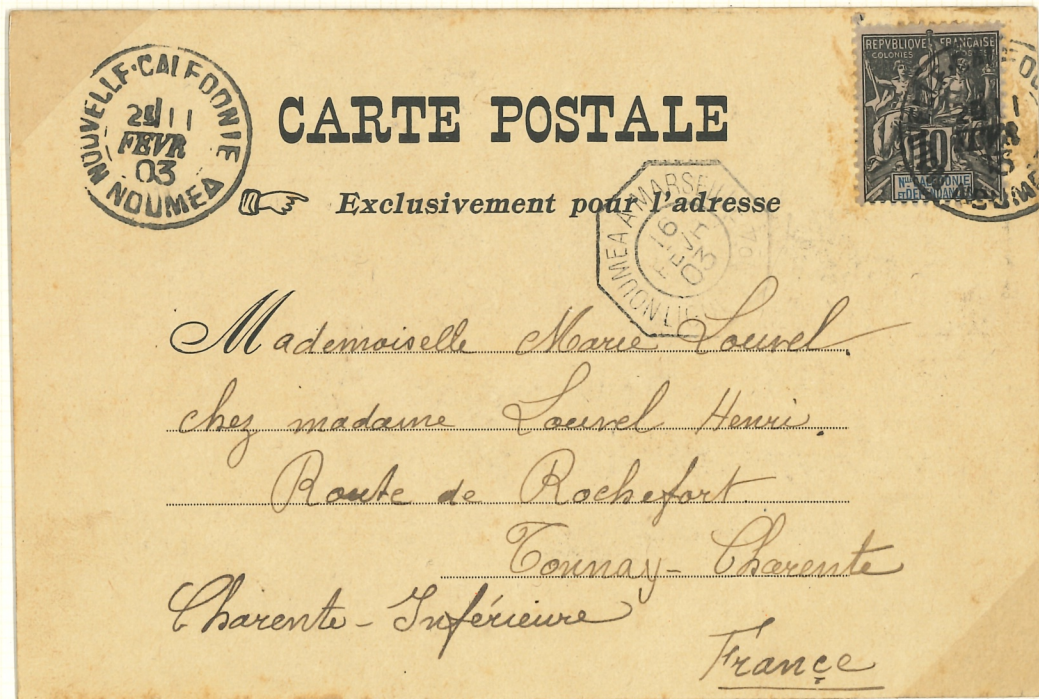 NOUVELLE-CALEDONIE
11
FEVR
03
NOUMEA
CARTE POSTALE
REPUBLIQUE FRANÇAISE
COLONIES
10
Nlle CALEDONIE
ET DEPENDANCES
03
NOUMEA
Exclusivement pour l'adresse
NOUMEA A MARSEILLE
16
FEVR
03
Mademoiselle Marie Louvel
chez madame Louvel Henri.
Route de Rochefort
Tonnay-Charente
Charente-Inférieure
France